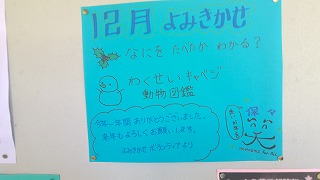 12月 よみきかせ
なにを たべたか わかる？
わくせいキャベジ
動物図鑑
今年一年間 ありがとうございました。
来年もよろしくお願いします。
よみきかせ ボランティアより
保々
笑